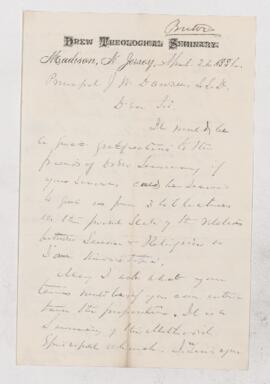 DREW THEOLOGICAL SEMINARY.
Madison, N. Jersey, 188
Principal J. W. Dawson L.L.D.
Dear Sir
It would be
a great gratification to the
friends of Drew Seminary if
your services could be secured
to give us from 3 to 6 lectures
on the present State of the relations
between Science & Religion
May I ask what your
terms would be if you can enter-
tain the proposition. It is a
Seminary of the Methodist
Episcopal Church.